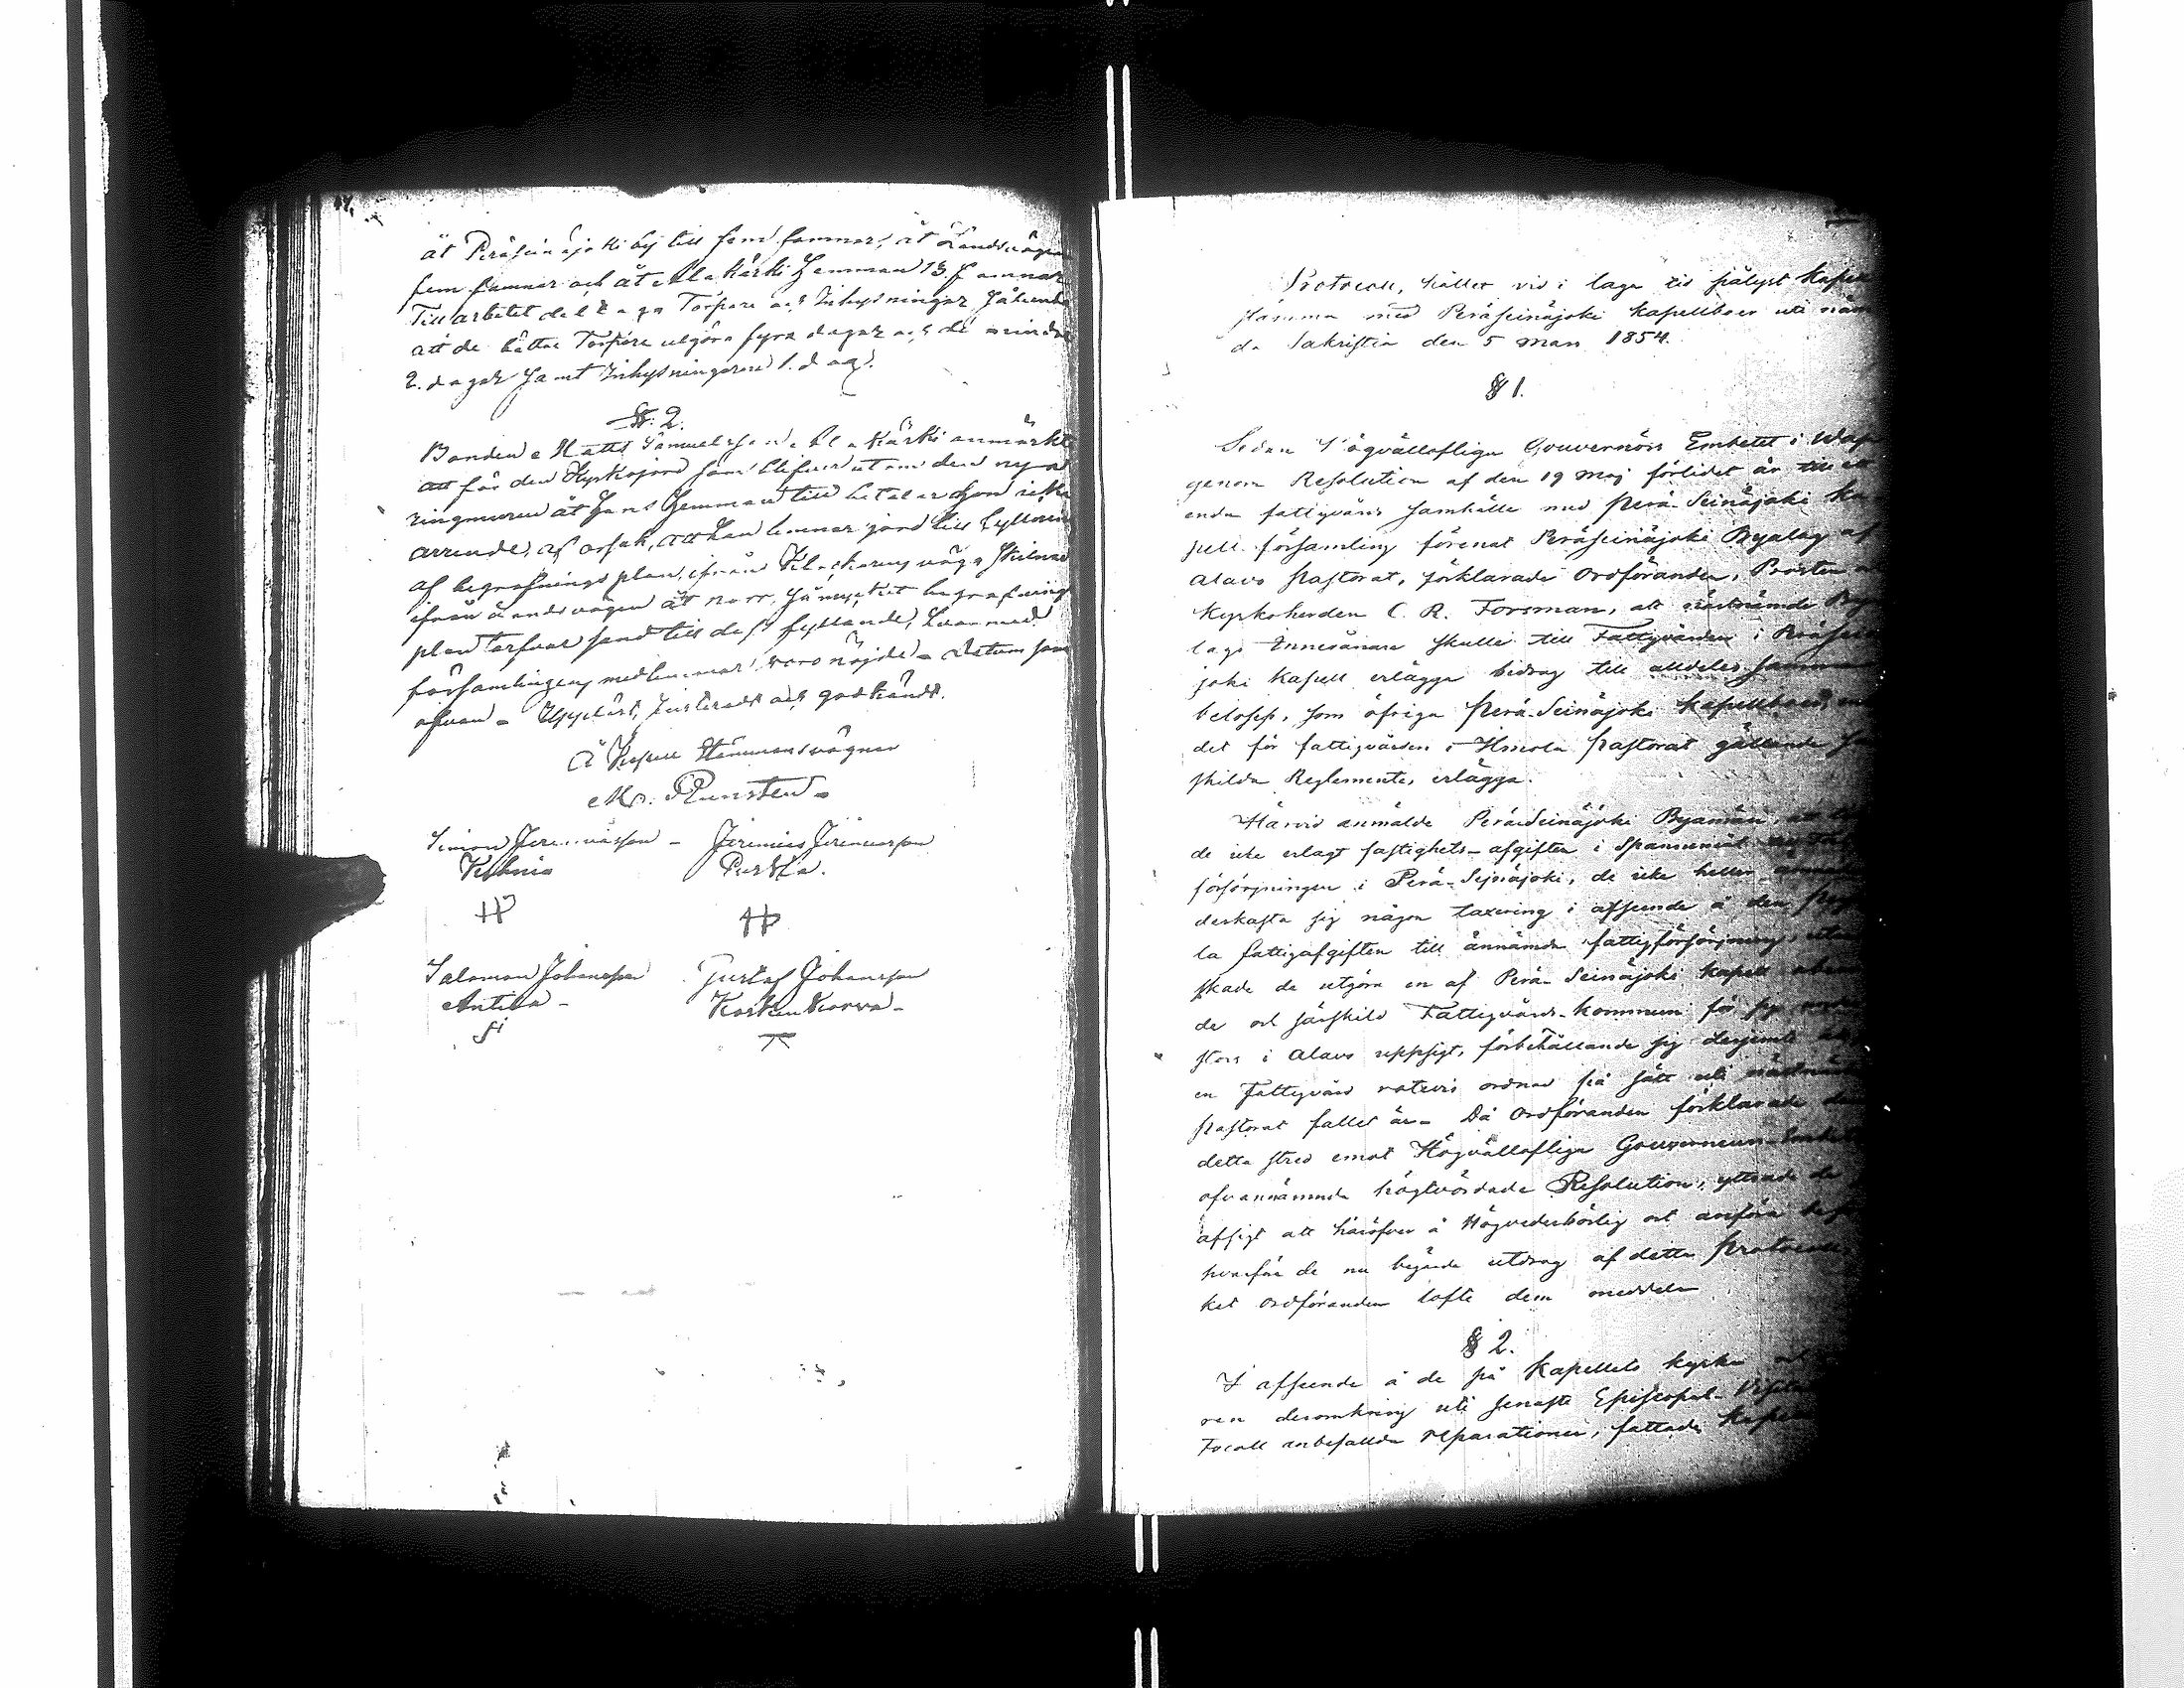 åt Peräseinäjoki by till fem famnar, åt Landsvägen
fem famnar och åt Ala Kärki Hemman 13 famnar
Till arbetet deltaga Torpare och Inhysningar sålunda
att de bättre Torpare utgöra fyra dagar och de mindre
2. dagar samt Inhysningarne 1. dag.
§. 2.
Bonden Matts Samuelsson Ala Kärki anmärkt
att för den Kyrkojord som blifver utom den nya
ringmuren åt hans Hemman till betalar han icke
arrende, af orsak, att han lemnar jord till fyllning
af begrafnings plan, ifrån Klockarens väga skilnad
ifrån Landsvägen åt norr, så mycket begrafnings
plan tarfvar sand till dess fyllande, hvarmed
församlingens medlemmar voro nöjde - Datum som
ofvan - Uppläst, Justeradt och godkändt.
À Kapell Stämmans vägnar
And: Runsten -
Simon Jeremiasson - Jeremias Jeremiasson
Kuhna Perkla.
HP HP
Salomon Johansson Gustaf Johansson
Antila - Korkia Korva -
Protocoll, hållet vid i laga tid pålyst Kapell
stämma med Peräseinäjoki Kapellboer uti näm
da Sakristia den 5 Mars 1854.
§ 1.
Sedan Högvällofliga Gouvernörs Embetet i Wasa
genom Resolution af den 19 Maj förlidet år till ett
enda fattigvårds samhälle med Perä-Seinäjoki Ka
pell församling förenat Peräseinäjoki Byalag af
Alavo pastorat, förklarade Ordföranden, Prosten
Kyrkoherden C. R. Forsman, att nästnämde Bya
lags Innevånare skulle till Fattigvården i Peräsei
joki Kapell erlägga bidrag till alldeles samma
belopp, som öfriga Perä-Seinäjoki Kapellboer,
det för fattigvården i Ilmola pastorat gällande
skilda Reglemente, erlägga.
Härvid anmälde Perä-Seinäjoki Byamän, att
de icke erlagt fastighets-afgiften i Spannemål
försörjningen i Perä-Seinäjoki, de icke heller
derkasta sig någon taxering i afseende å den
la fattigafgiften till ännämde fattigförsörjning, utan
skade de utgöra en af Perä-Seinäjoki Kapell
de och särskild Fattigvårds-kommun för sig
stors i Alavo uppsigt, förbehållande sig derjemte
en Fattigvård rotevis ordnad på sätt uti nästnämde
pastorat fallet är - Då Ordföranden förklarade
detta stred emot Högvällofliga Gouverneurs-Embetets
ofvannämnda högtvördade Resolution, yttrade de
afsigt att häröfver å Högvederbörlig ort anföra
hvarföre de nu begärde utdrag af detta protocoll,
ket Ordföranden lofte dem meddela
§ 2.
I afseende å de på Kapellets kyrka och
ren deromkring uti senaste Episcopal-Visitations
tocoll anbefallda reparationer, fattade Kapell